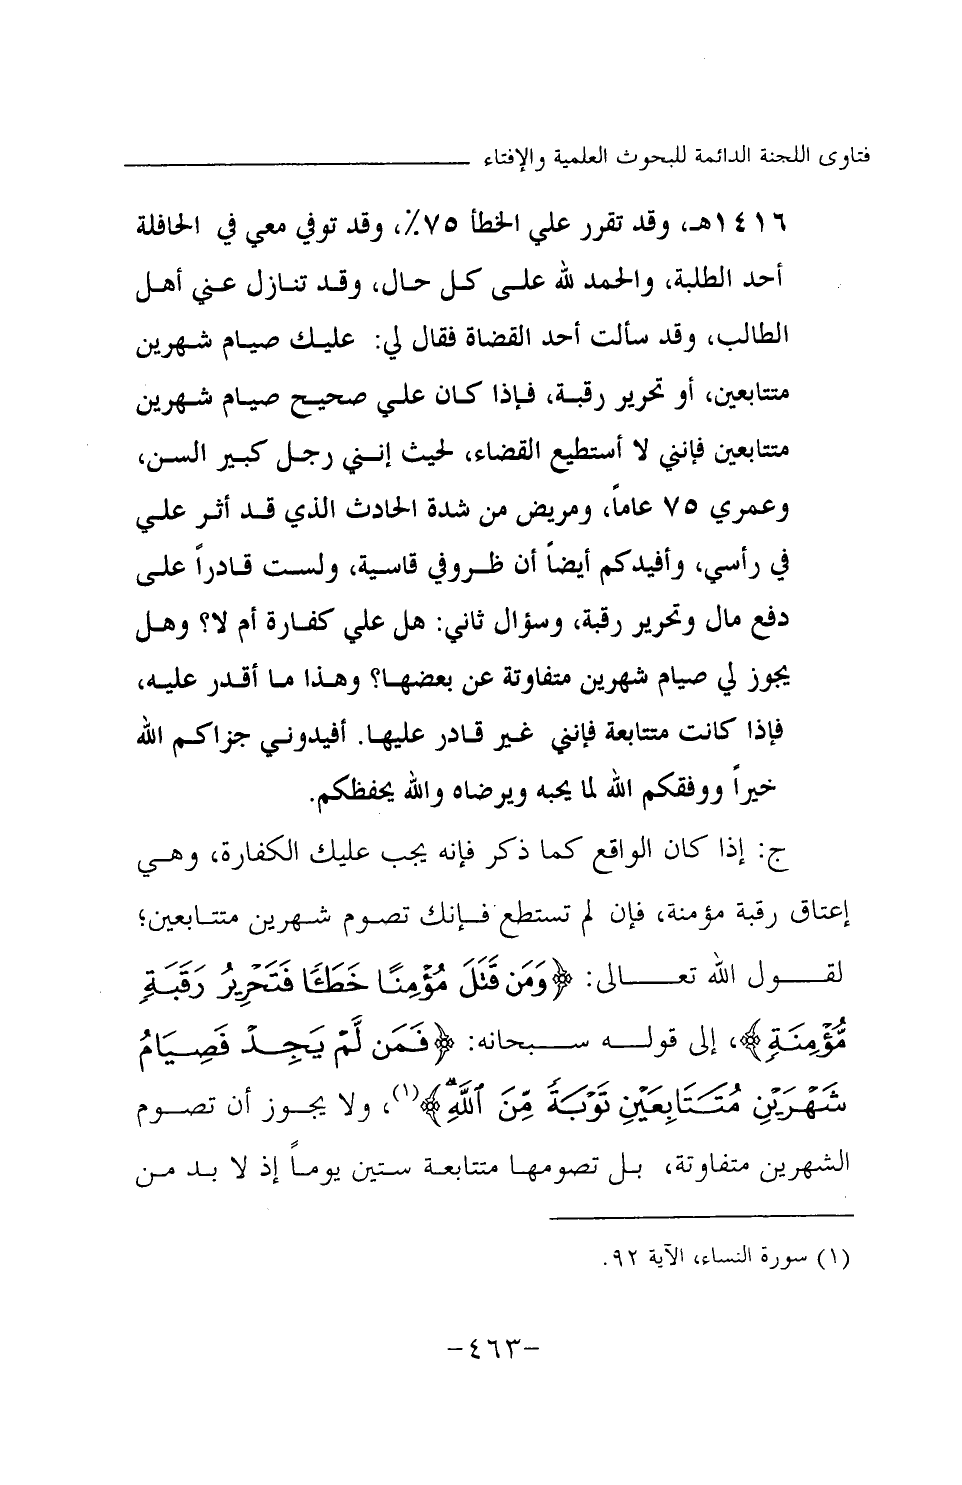 فتاوى اللجنة الدائمة للبحوث العلمية والإفتاء
١٤١٦هـ، وقد تقرر علي الخطأ ٧٥٪، وقد توفي معي في الحافلة
أحد الطلبة، والحمد لله على كل حال، وقد تنازل عني أهل
الطالب، وقد سألت أحد القضاة فقال لي: عليك صيام شهرين
متتابعين، أو تحرير رقبة، فإذا كان علي صحيح صيام شهرين
متتابعين فإنني لا أستطيع القضاء، لحيث إنني رجل كبير السن،
وعمري ٧٥ عاماً، ومريض من شدة الحادث الذي قد أثر علي
في رأسي، وأفيدكم أيضاً أن ظروفي قاسية، ولست قادراً على
دفع مال وتحرير رقبة، وسؤال ثاني: هل علي كفارة أم لا؟ وهل
يجوز لي صيام شهرين متفاوتة عن بعضها؟ وهذا ما أقدر عليه،
فإذا كانت متتابعة فإنني غير قادر عليها. أفيدوني جزاكم الله
خيراً ووفقكم الله لما يحبه ويرضاه والله يحفظكم.
ج: إذا كان الواقع كما ذكر فإنه يجب عليك الكفارة، وهي
إعتاق رقبة مؤمنة، فإن لم تستطع فإنك تصوم شهرين متتابعين؛
لقول الله تعالى: ﴿وَمَن قَتَلَ مُؤْمِنًا خَطَـًٔا فَتَحْرِيرُ رَقَبَةٍ
مُّؤْمِنَةٍ﴾، إلى قوله سبحانه: ﴿فَمَن لَّمْ يَجِدْ فَصِيَامُ
شَهْرَيْنِ مُتَتَابِعَيْنِ تَوْبَةً مِّنَ ٱللَّهِ﴾(١)، ولا يجوز أن تصوم
الشهرين متفاوتة، بل تصومها متتابعة ستين يوماً إذ لا بد من
(١) سورة النساء، الآية ٩٢.
-٤٦٣-